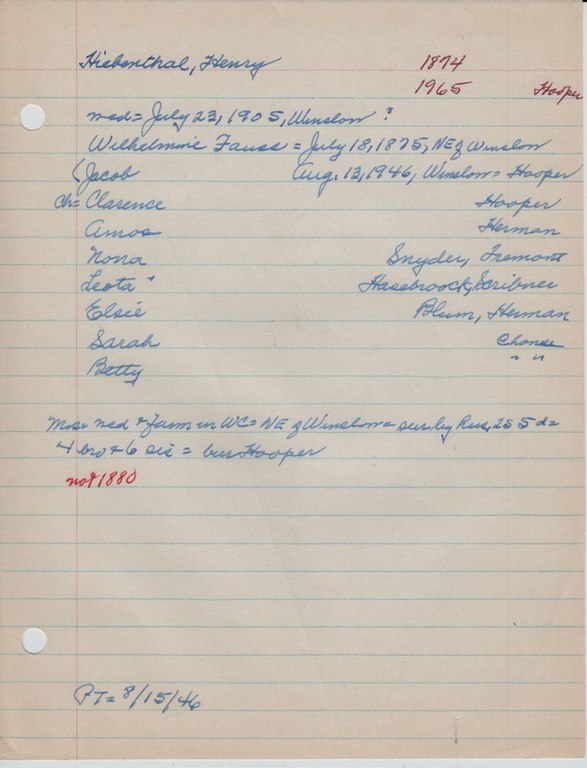 Hisbenthal, Henry 1874
1965 Hooper
med = July 23, 1905, Winslow ?
Wilhelmine Fauss = July 18, 1875, NE of Winslow
(Jacob Aug. 13, 1946, Winslow = Hooper
ch = Clarence Hooper
Amos Herman
Nona Snyder, Fremont
Leota " Hasebroock, Scribner
Elsie Blum, Herman
Sarah Home
Betty " "
Mrs = ned & farm in WC = NE of Winslow = sur by hus, 2s 5d =
4 bro & 6 sis = bur Hooper
not 1880
PT = 8/15/46